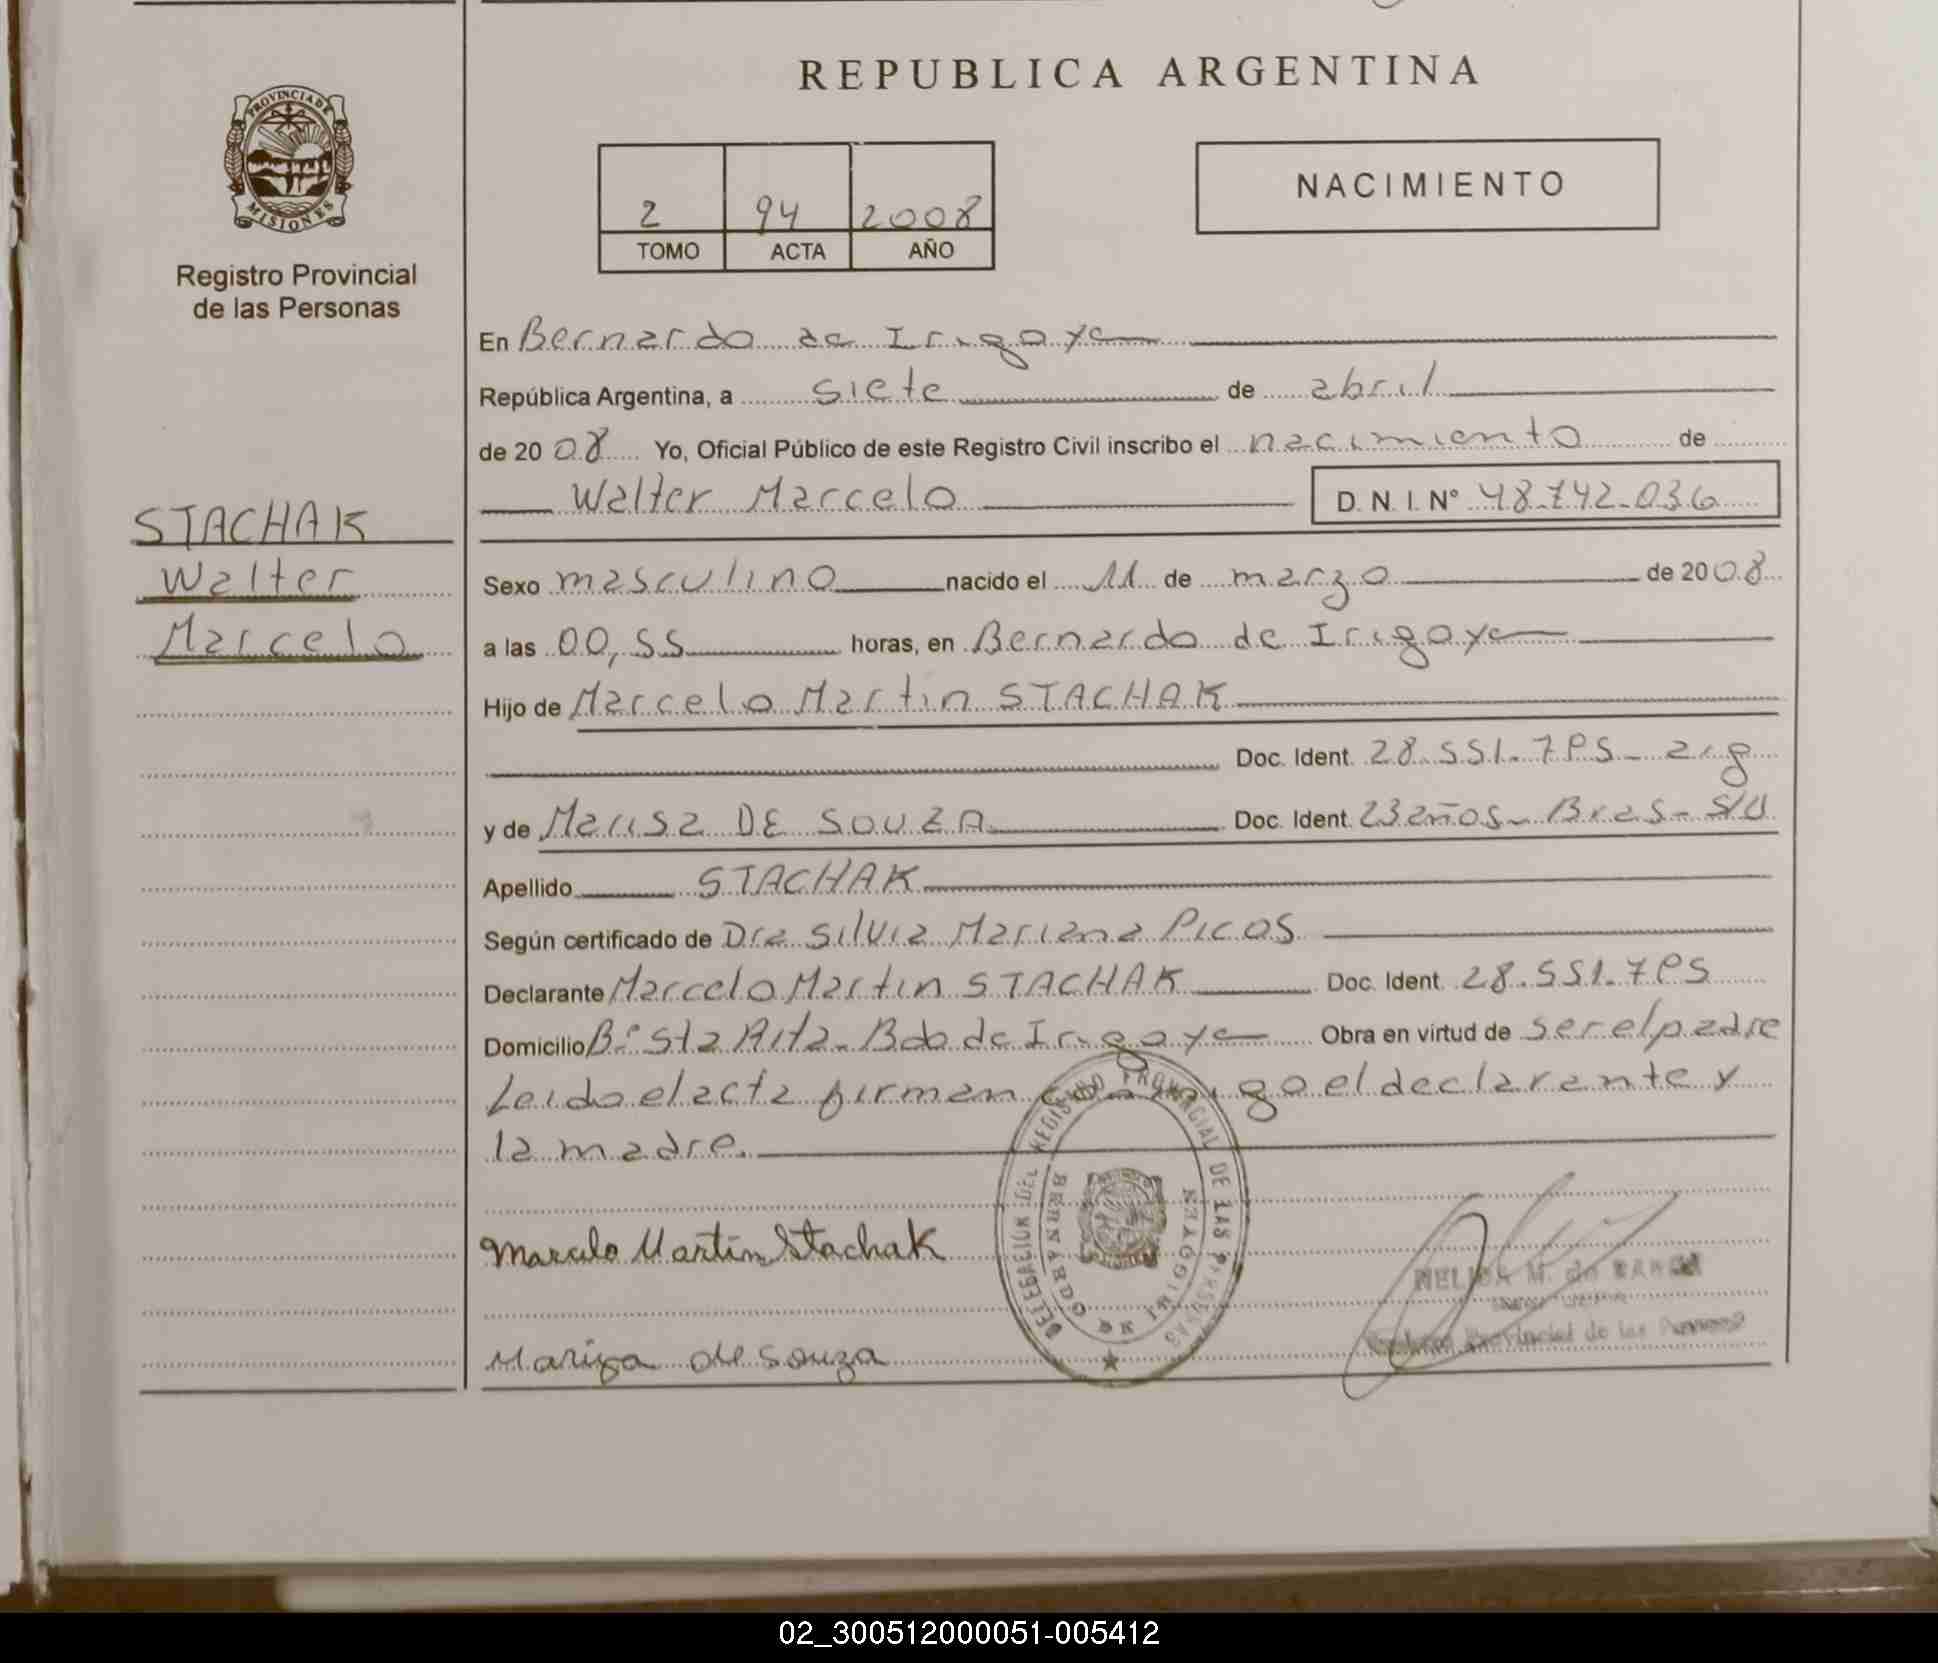 REPUBLICA ARGENTINA
PROVINCIA DE
MISIONES
Registro Provincial
de las Personas
2 94 2008
TOMO ACTA AÑO
NACIMIENTO
En Bernardo de Irigoye
República Argentina, a siete de abril
de 2008 Yo, Oficial Público de este Registro Civil inscribo el nacimiento de
Walter Marcelo D. N. I. N° 48.742.036
STACHAK
Walter
Marcelo
Sexo masculino nacido el 11 de marzo de 2008
a las 00,55 horas, en Bernardo de Irigoye
Hijo de Marcelo Martin STACHAK
Doc. Ident. 28.551.7PS - arg
y de Marisa DE SOUZA Doc. Ident. 23 años - Bras - S/U
Apellido STACHAK
Según certificado de Dra Silvia Mariana PICOS
Declarante Marcelo Martin STACHAK Doc. Ident. 28.551.7PS
Domicilio Bº Sta Rita - Bdo de Irigoye Obra en virtud de ser el padre
Leido el acta firman conmigo el declarante y
la madre.
DELEGACION DEL REGISTRO PROVINCIAL DE LAS PERSONAS
BERNARDO DE IRIGOYEN
Marcelo Martin Stachak
Mariza de Souza
NELIDA M. de
Provincial de las Personas
02_300512000051-005412